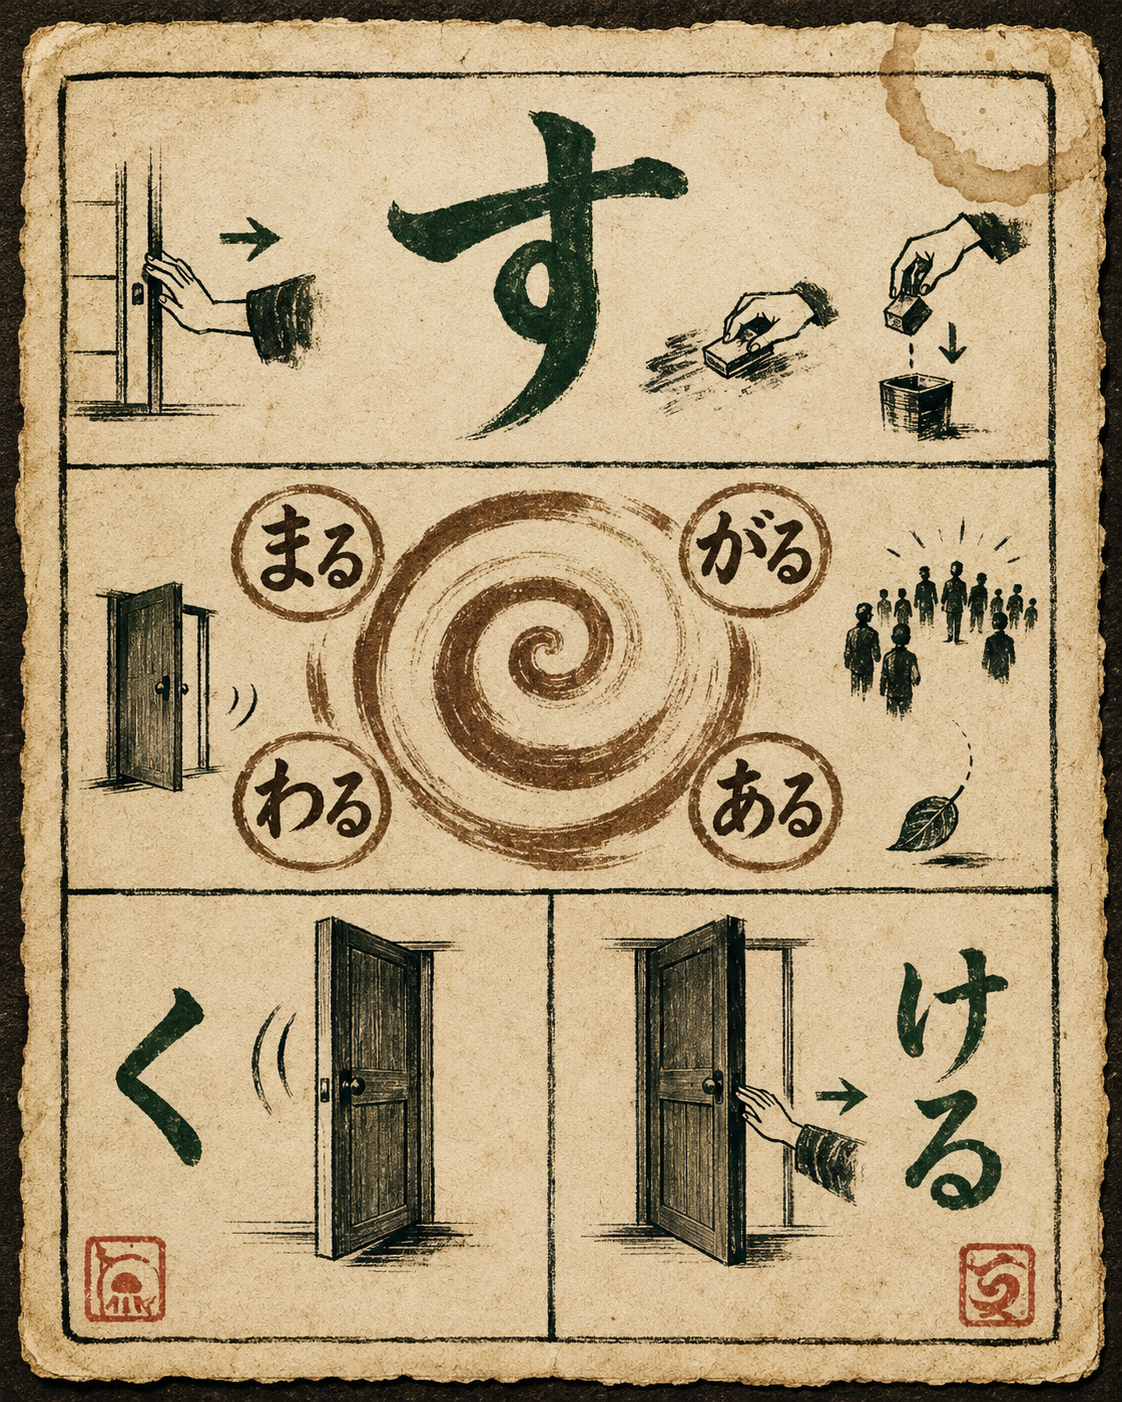 す
まる
がる
わる
ある
く
ける